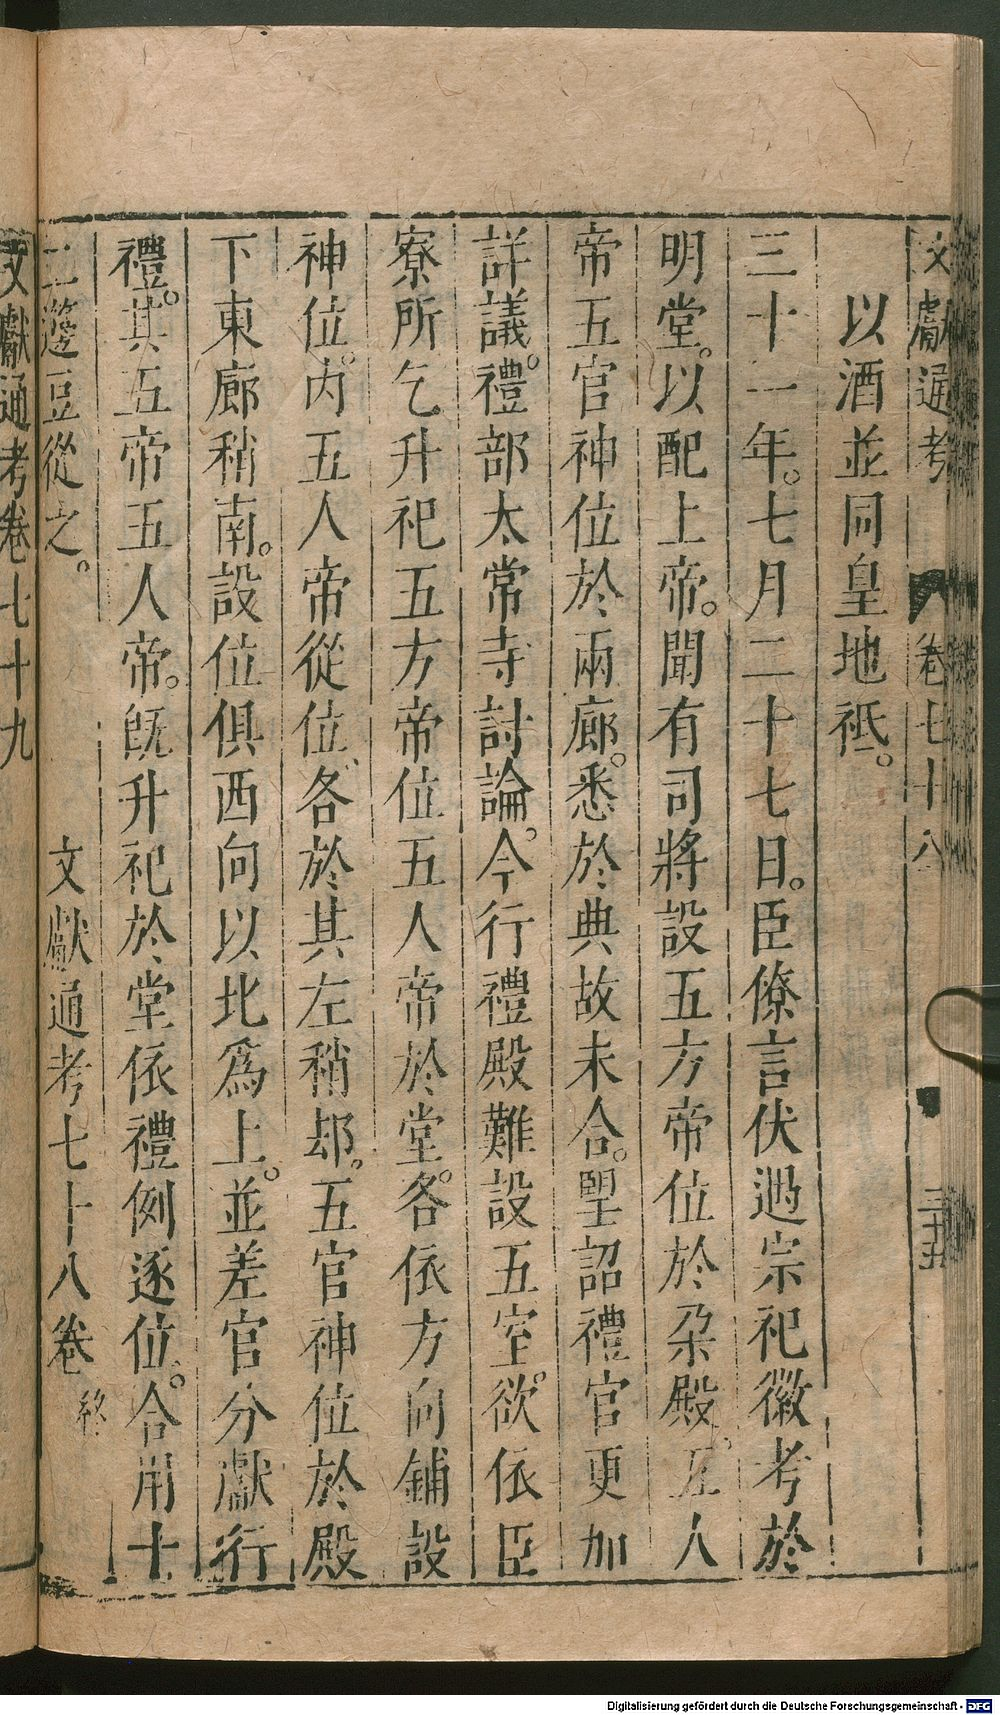 文獻通考 卷七十八 三十五
以酒並同皇地祇。
三十一年。七月二十七日。臣僚言伏遇宗祀徽考於
明堂。以配上帝。聞有司將設五方帝位於朶殿。五人
帝五官神位於兩廊。悉於典故未合。望詔禮官更加
詳議。禮部太常寺討論。今行禮殿難設五室。欲依臣
寮所乞升祀五方帝位五人帝於堂。各依方向鋪設
神位。內五人帝從位、各於其左稍却。五官神位於殿
下東廊稍南。設位俱西向以北爲上。並差官分獻行
禮。其五帝五人帝。旣升祀於堂依禮例逐位。合用十
二籩豆從之。
文獻通考七十八卷 終
文獻通考卷七十九
Digitalisierung gefördert durch die Deutsche Forschungsgemeinschaft - DFG